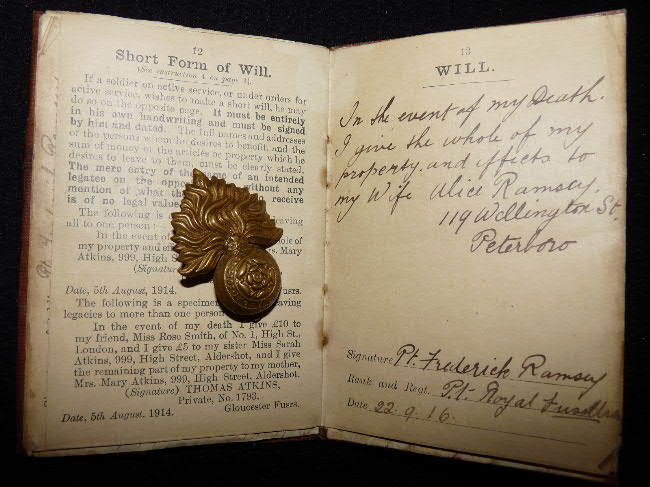 12
Short Form of Will.
(See instruction 4 on page 1).
If a soldier on active service, or under orders for
active service, wishes to make a short will, he may
do so on the opposite page. It must be entirely
in his own handwriting and must be signed
by him and dated. The full names and addresses
of the persons whom he desires to benefit, and the
sum of money or the articles or property which he
desires to leave to them, must be clearly stated.
The mere entry of the name of an intended
legatee on the opposite without any
mention of what receive
is of no legal value.
The following is leaving
all to one person:—
In the event of whole of
my property and Mrs. Mary
Atkins, 999, High S
(Signature)
Fusrs.
Date, 5th August, 1914.
The following is a specimen leaving
legacies to more than one person
In the event of my death I give £10 to
my friend, Miss Rose Smith, of No. 1, High St.,
London, and I give £5 to my sister Miss Sarah
Atkins, 999, High Street, Aldershot, and I give
the remaining part of my property to my mother,
Mrs. Mary Atkins, 999, High Street, Aldershot.
(Signature) THOMAS ATKINS,
Private, No. 1793.
Gloucester Fusrs.
Date, 5th August, 1914.
13
WILL.
In the event of my Death.
I give the whole of my
property and effects to
my Wife Alice Ramsey.
119 Wellington St.
Peterboro
Signature Pt. Frederick Ramsey
Rank and Regt. Pt. Royal Fusiliers
Date 22.9.16.